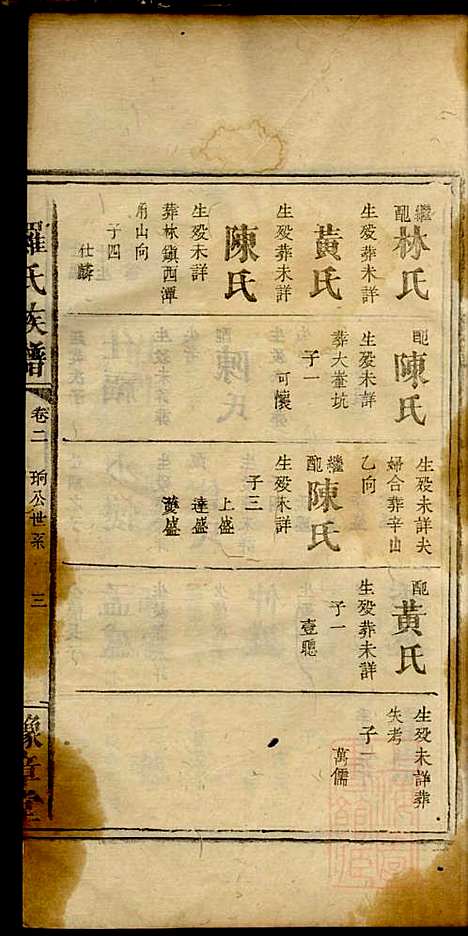 繼配林氏
生殁葬未詳
黃氏
生殁葬未詳
陳氏
生殁未詳
葬林鎮西潭
山向
子四
仕麟
配陳氏
生殁未詳
葬大峯坑
子一
可懷
生殁未詳夫
婦合葬辛山
乙向
繼配陳氏
生殁未詳
子三
上盛
達盛
配黃氏
生殁葬未詳
子一
壹聰
生殁未詳葬
失考
子一
萬儒
羅氏族譜
卷二
珦公世系
三
豫章堂